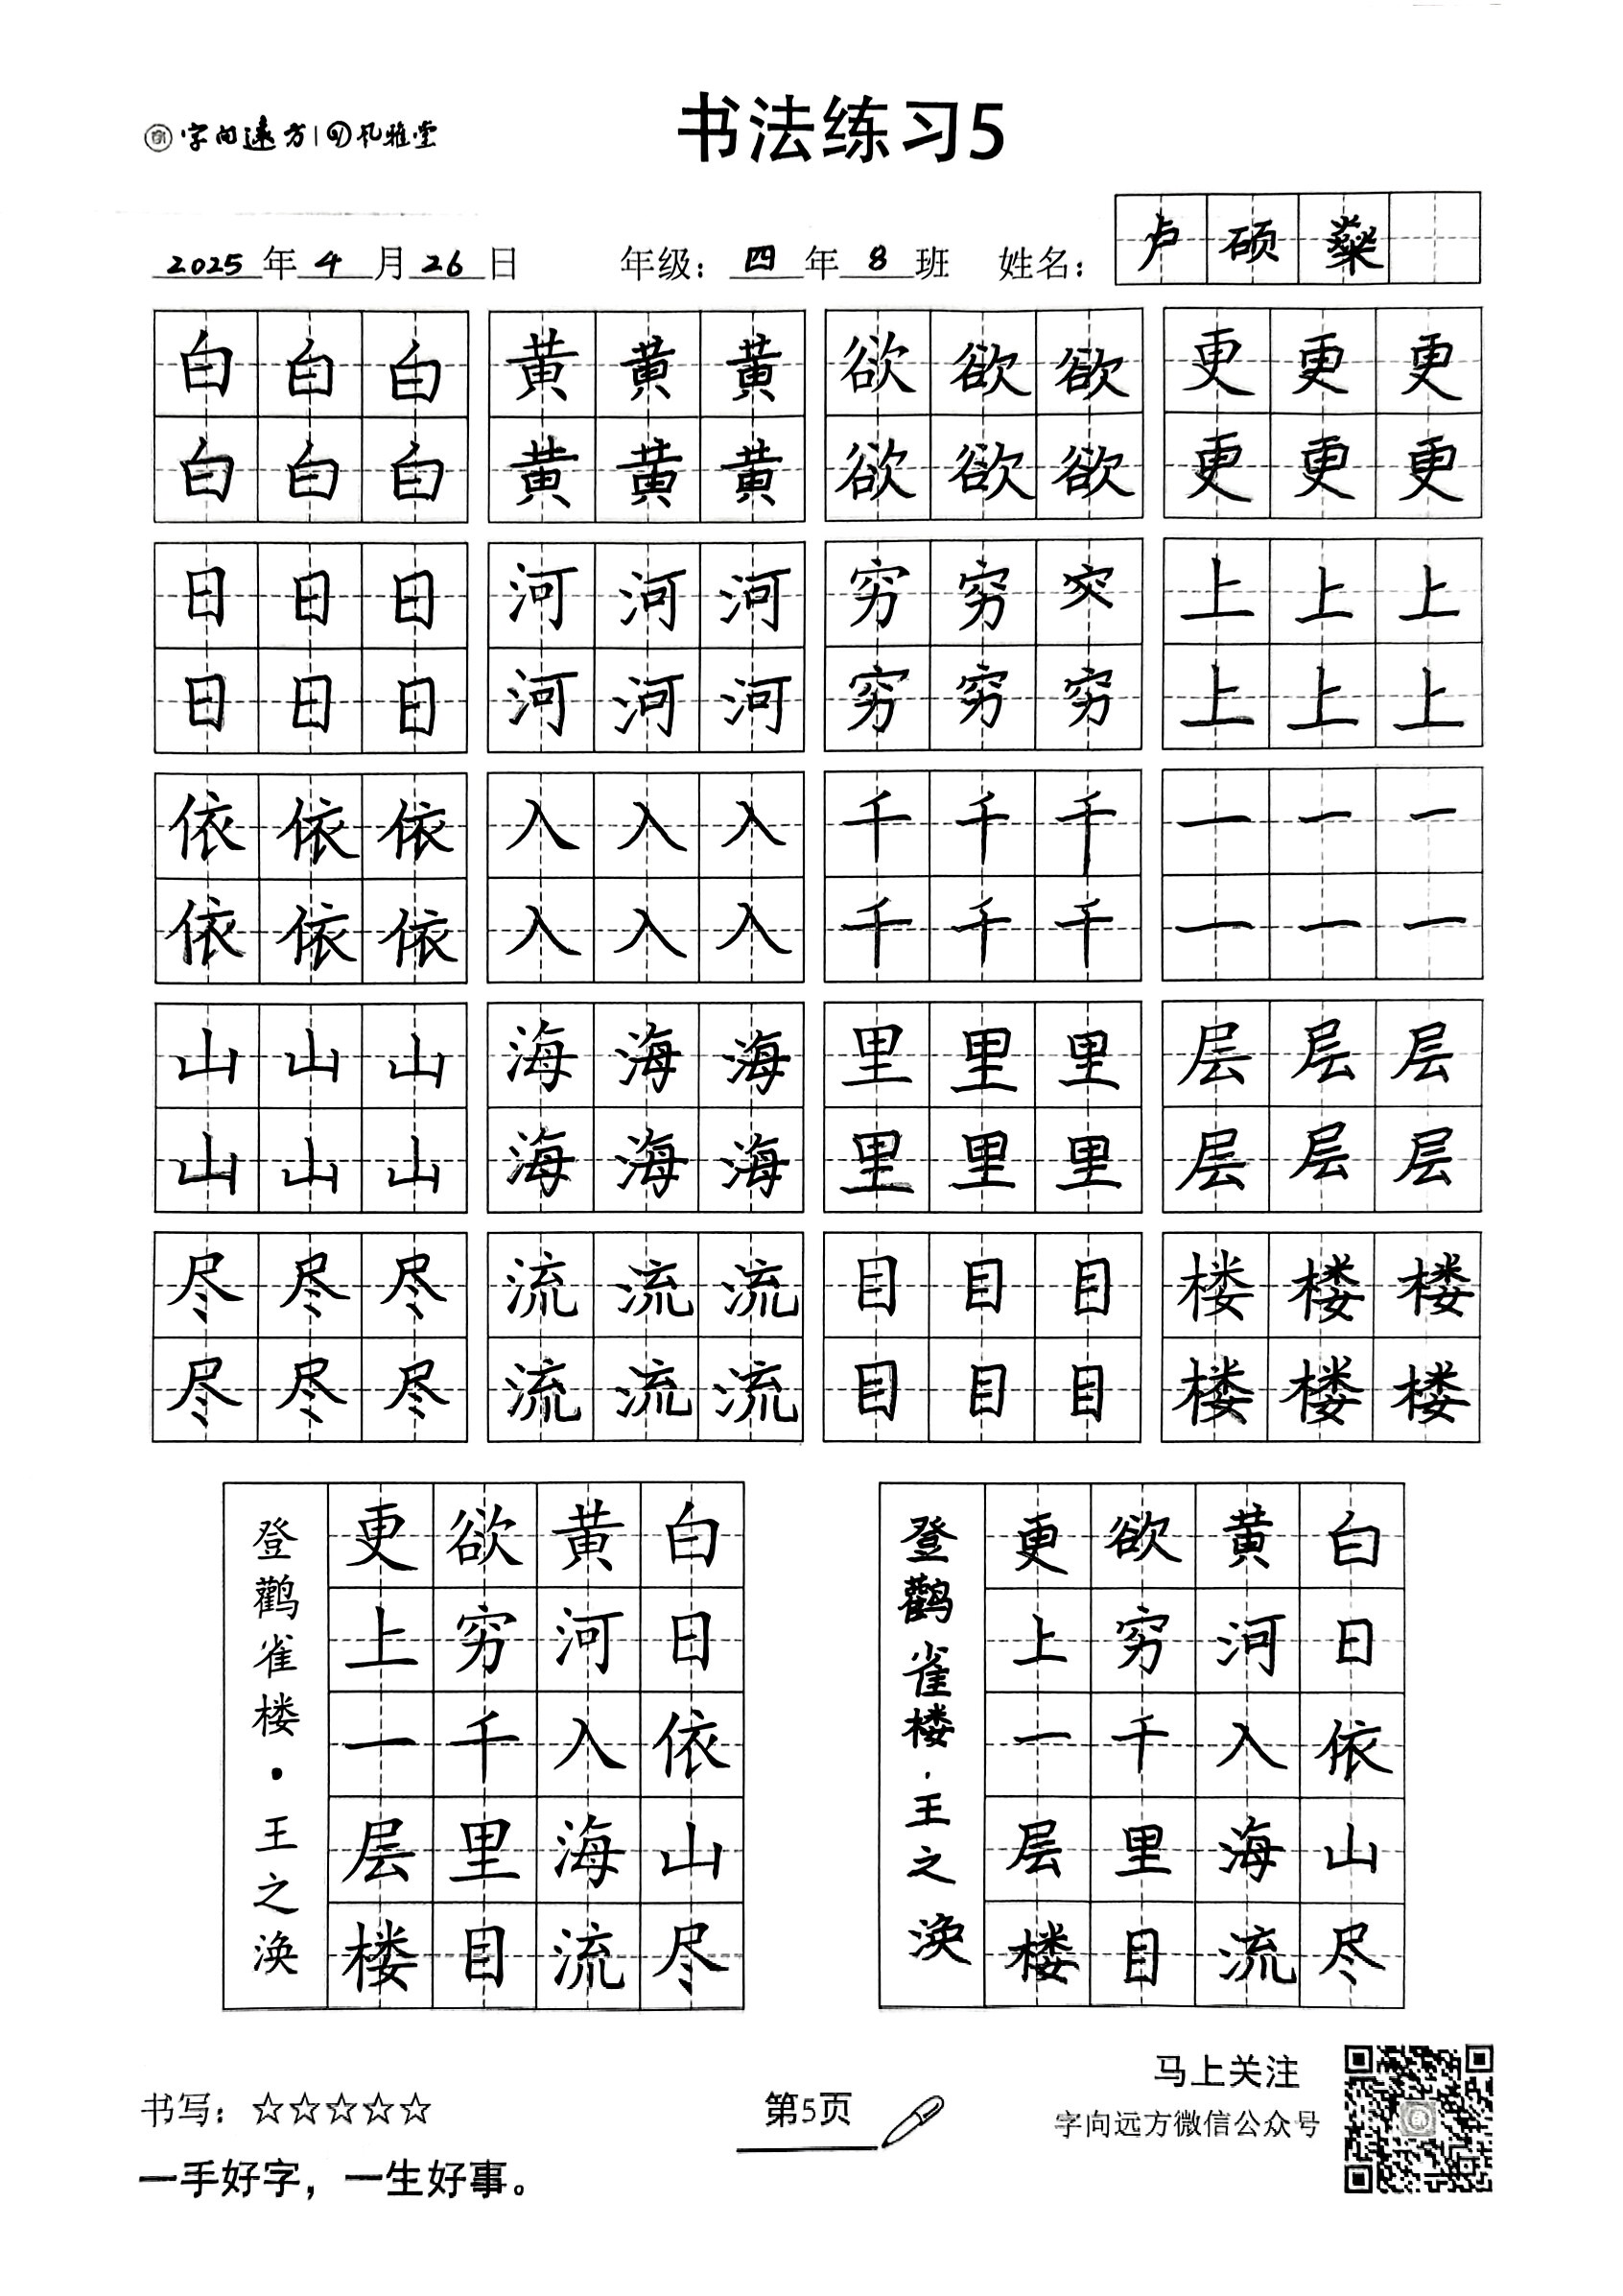 字向远方 | 孔雅堂
书法练习5
2025年4月26日 年级：四年8班 姓名：卢硕燊
白白白 黄黄黄 欲欲欲 更更更
白白白 黄黄黄 欲欲欲 更更更
日日日 河河河 穷穷 上上上
日日日 河河河 穷穷穷 上上上
依依依 入入入 千千千 一一一
依依依 入入入 千千千 一一一
山山山 海海海 里里里 层层层
山山山 海海海 里里里 层层层
尽尽尽 流流流 目目目 楼楼楼
尽尽尽 流流流 目目目 楼楼楼
白日依山尽
黄河入海流
欲穷千里目
更上一层楼
登鹳雀楼·王之涣
白日依山尽
黄河入海流
欲穷千里目
更上一层楼
登鹳雀楼·王之涣
书写：☆☆☆☆☆
一手好字，一生好事。
第5页
马上关注
字向远方微信公众号